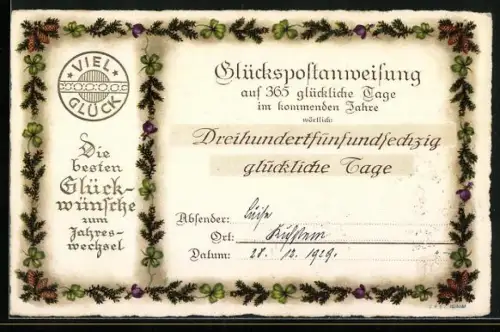 VIEL
GLÜCK
Die
besten
Glück-
wünsche
zum
Jahres-
wechsel
Glückspostanweisung
auf 365 glückliche Tage
im kommenden Jahre
wörtlich:
Dreihundertfünfundsechzig
glückliche Tage
Absender: Luise
Ort: Kufstein
Datum: 28. 12. 1929.